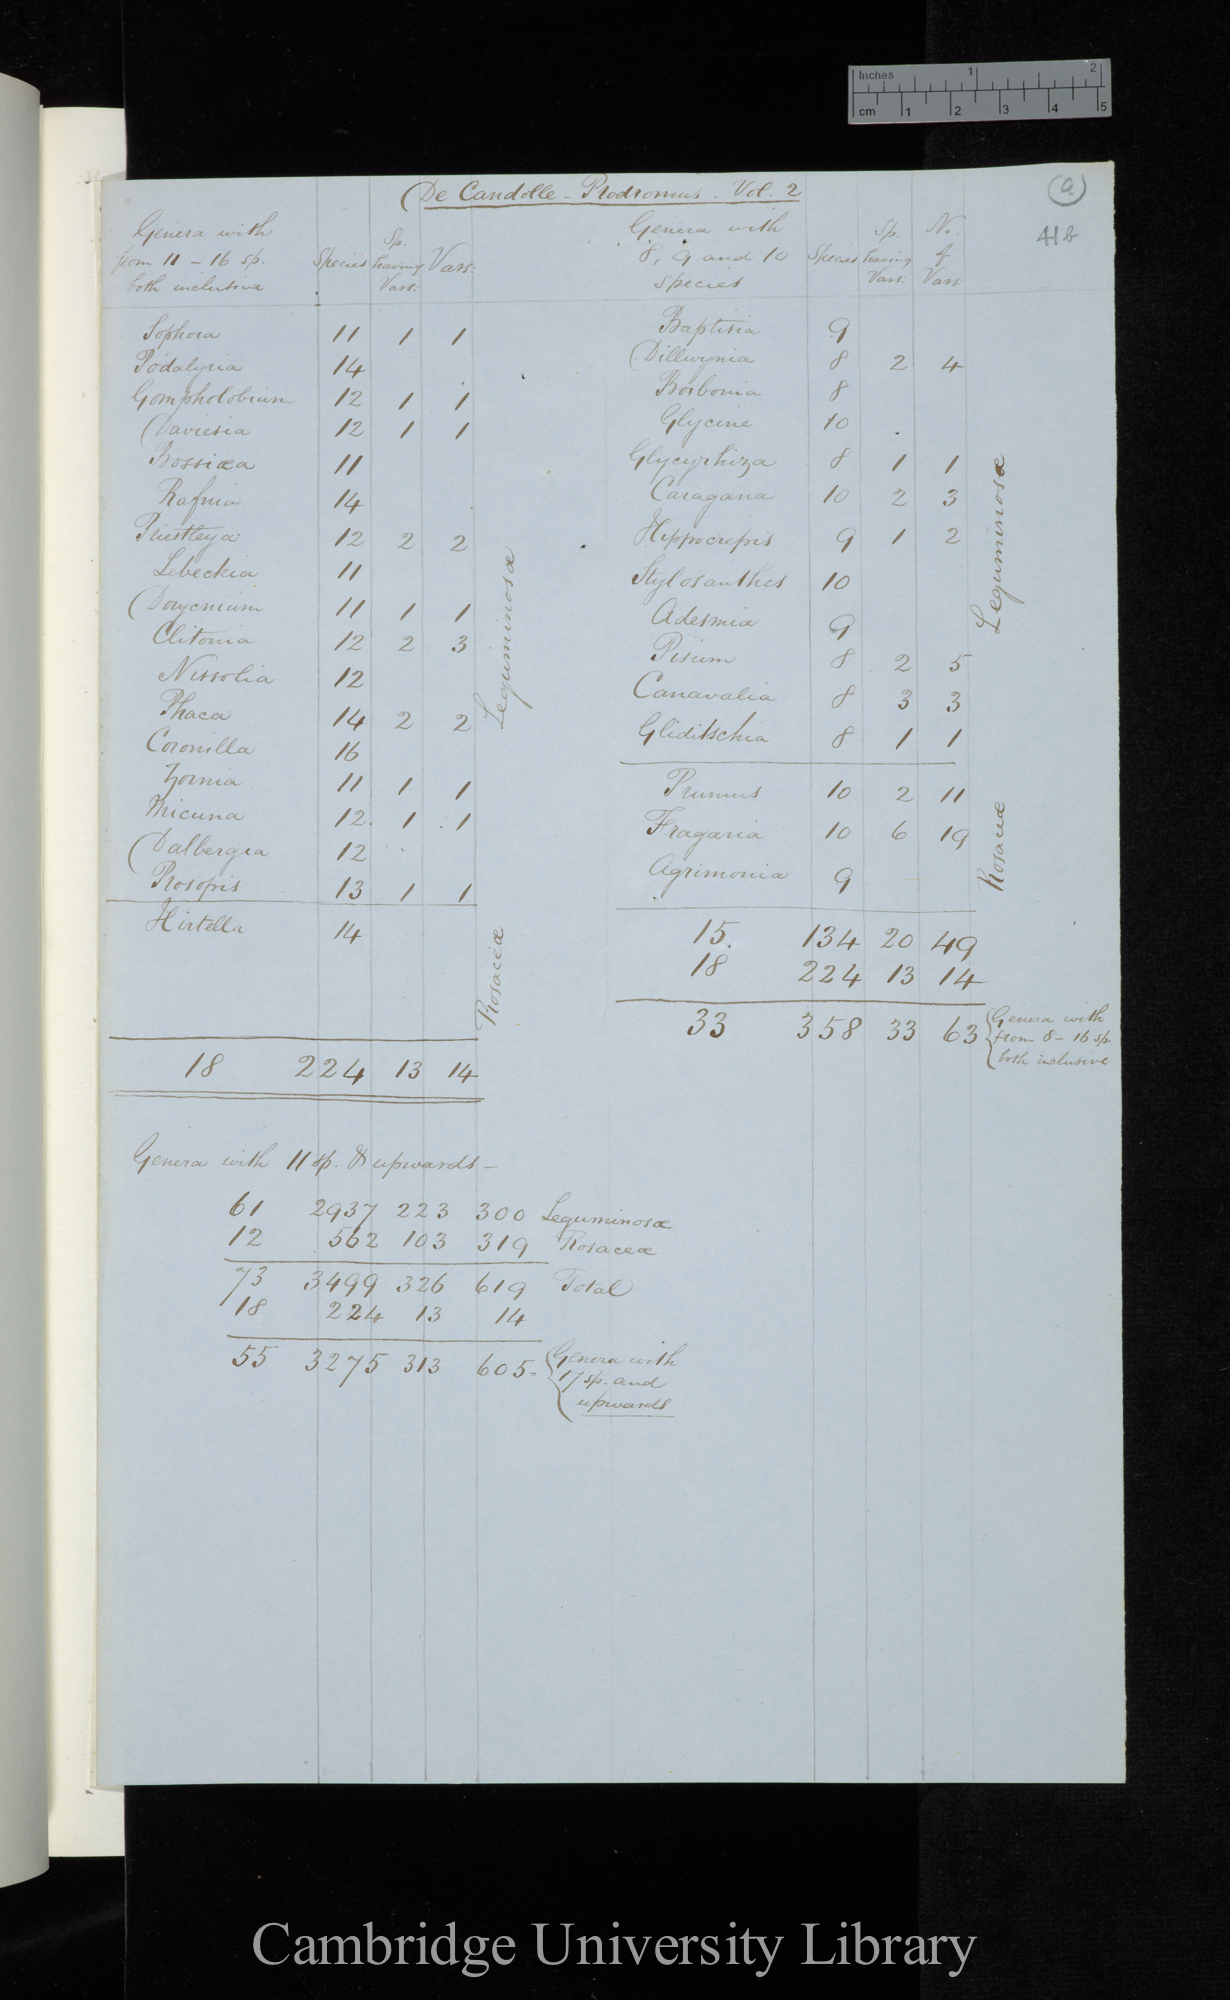 Inches 1 2
cm 1 2 3 4 5
De Candolle - Prodromus. Vol. 2
(a)
41b
Genera with
from 11 - 16 sp.
both inclusive
Species
Sp. having Vars:
Vars:
Sophora 11 1 1
Podalyria 14
Gompholobium 12 1 1
Daviesia 12 1 1
Bossiæa 11
Rafnia 14
Priestleya 12 2 2
Lebeckia 11
Dorycnium 11 1 1
Clitoria 12 2 3
Nissolia 12
Phaca 14 2 2
Coronilla 16
Zornia 11 1 1
Mucuna 12. 1 1
Dalbergia 12
Prosopis 13 1 1
Leguminosæ
Hirtella 14
Rosaceæ
18 224 13 14
Genera with
8, 9 and 10
species
Species
Sp. having Vars:
No. of Vars:
Baptisia 9
Dillwynia 8 2 4
Borbonia 8
Glycine 10
Glycyrhiza 8 1 1
Caragana 10 2 3
Hippocrepis 9 1 2
Stylosanthes 10
Adesmia 9
Pisum 8 2 5
Canavalia 8 3 3
Gliditschia 8 1 1
Leguminosæ
Prunus 10 2 11
Fragaria 10 6 19
Agrimonia 9
Rosaceæ
15. 134 20 49
18 224 13 14
33 358 33 63 Genera with
from 8 - 16 sp.
both inclusive
Genera with 11 sp. & upwards -
61 2937 223 300 Leguminosæ
12 562 103 319 Rosaceæ
73 3499 326 619 Total
18 224 13 14
55 3275 313 605 - Genera with
17 sp. and
upwards
Cambridge University Library